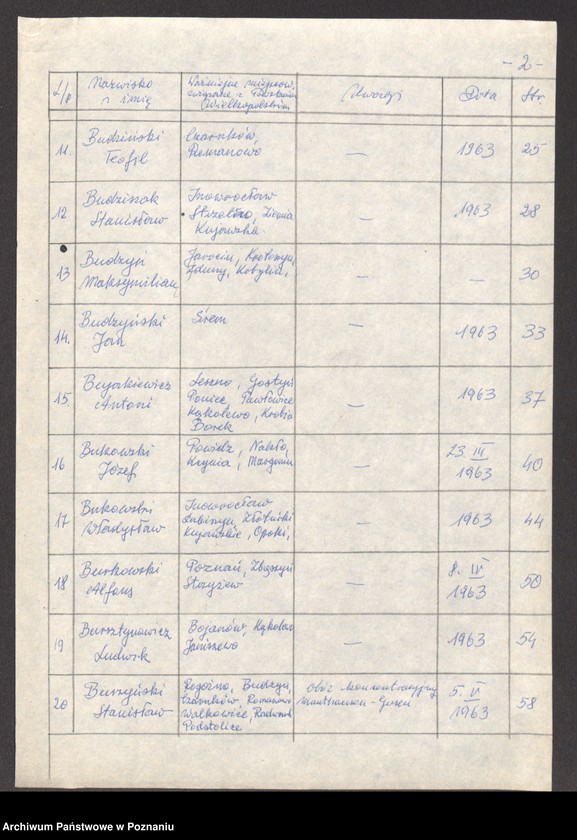 - 2 -
L/p Nazwisko i imię Ważniejsze miejscow. związane z Powstaniem Wielkopolskim Uwagi Data Str.
11. Budziński Teofil
Czarnków, Romanowo
— 1963 25
12. Budziszak Stanisław
Inowrocław
Strzelno, Ziemia
Kujawska
— 1963 28
13 Budzyń Maksymilian
Jarocin, Krotoszyn,
Zduny, Kobylin,
— — 30
14. Budzyński Jan
Śrem
— 1963 33
15. Antoni
Leszno, Gostyń
Poniec, Pawłowice
Kąkolewo, Krobia
Borek
— 1963 37
16 Bukowski Józef
Powidz, Nakło,
Kcynia, Margonin
— 23 III 1963 40
17 Bukowski Władysław
Inowrocław
Łabiszyn, Złotniki
Kujawskie,
— 1963 44
18 Burkowski Alfons
Poznań, Zbąszyń
Strzyżew
— 8. IV 1963 50
19 Bursztynowicz Ludwik
Bojanów,
Janiszewo
— 1963 54
20 Burzyński Stanisław
Rogoźno, Budzyń,
Czarnków, Romanowo
Walkowice,
Podstolice
obóz koncentracyjny
Mauthausen - Gusen
5. 1963 58
Archiwum Państwowe w Poznaniu